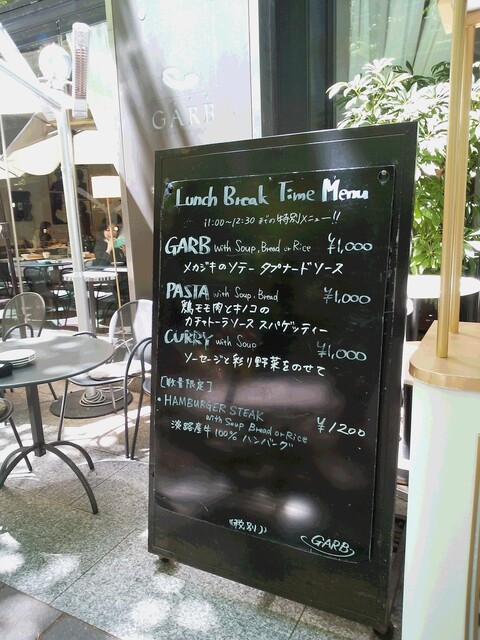 GARB
Lunch Break Time Menu
11:00~12:30 までの特別メニュー!!
GARB with Soup, Bread or Rice ¥1,000
メカジキのソテー タプナードソース
PASTA with Soup, Bread ¥1,000
鶏モモ肉とキノコの
カチャトーラソース スパゲッティー
CURRY with Soup ¥1,000
ソーセージと彩り野菜をのせて
[数量限定]
・HAMBURGER STEAK
with Soup Bread or Rice ¥1200
淡路産牛100% ハンバーグ
(税別)
GARB